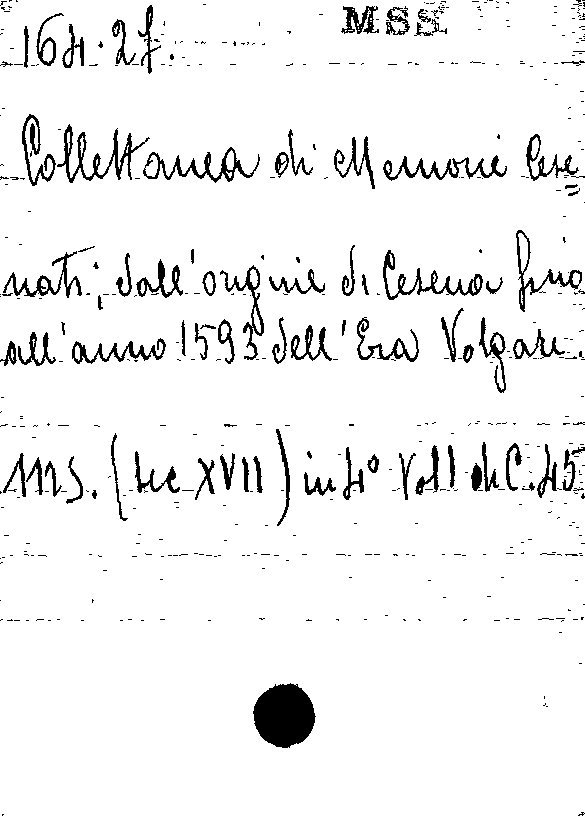 MSS.
164.27.
Collettanea di Memorie Cese=
nati, dall'origine di Cesena fino
all'anno 1593 dell'Era Volgare.
MS. (sec XVII) in 4° Vol 1 di C. 45.